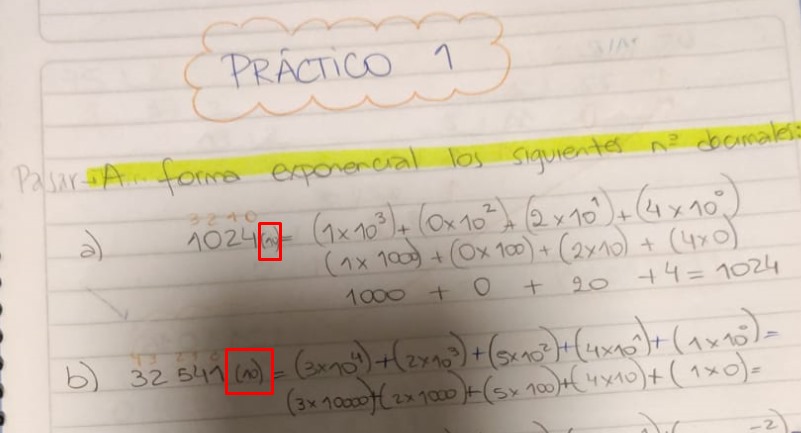 PRÁCTICO 1
Pasar A forma exponencial los siguientes nº decimales:
3 2 1 0
a) 1024(10) = (1x10³) + (0x10²) + (2x10¹) + (4x10⁰)
(1x1000) + (0x100) + (2x10) + (4x0)
1000 + 0 + 20 + 4 = 1024
4 3 2 1 0
b) 32 541 (10) = (3x10⁴) + (2x10³) + (5x10²) + (4x10¹) + (1x10⁰) =
(3x10000) + (2x1000) + (5x100) + (4x10) + (1x0) =